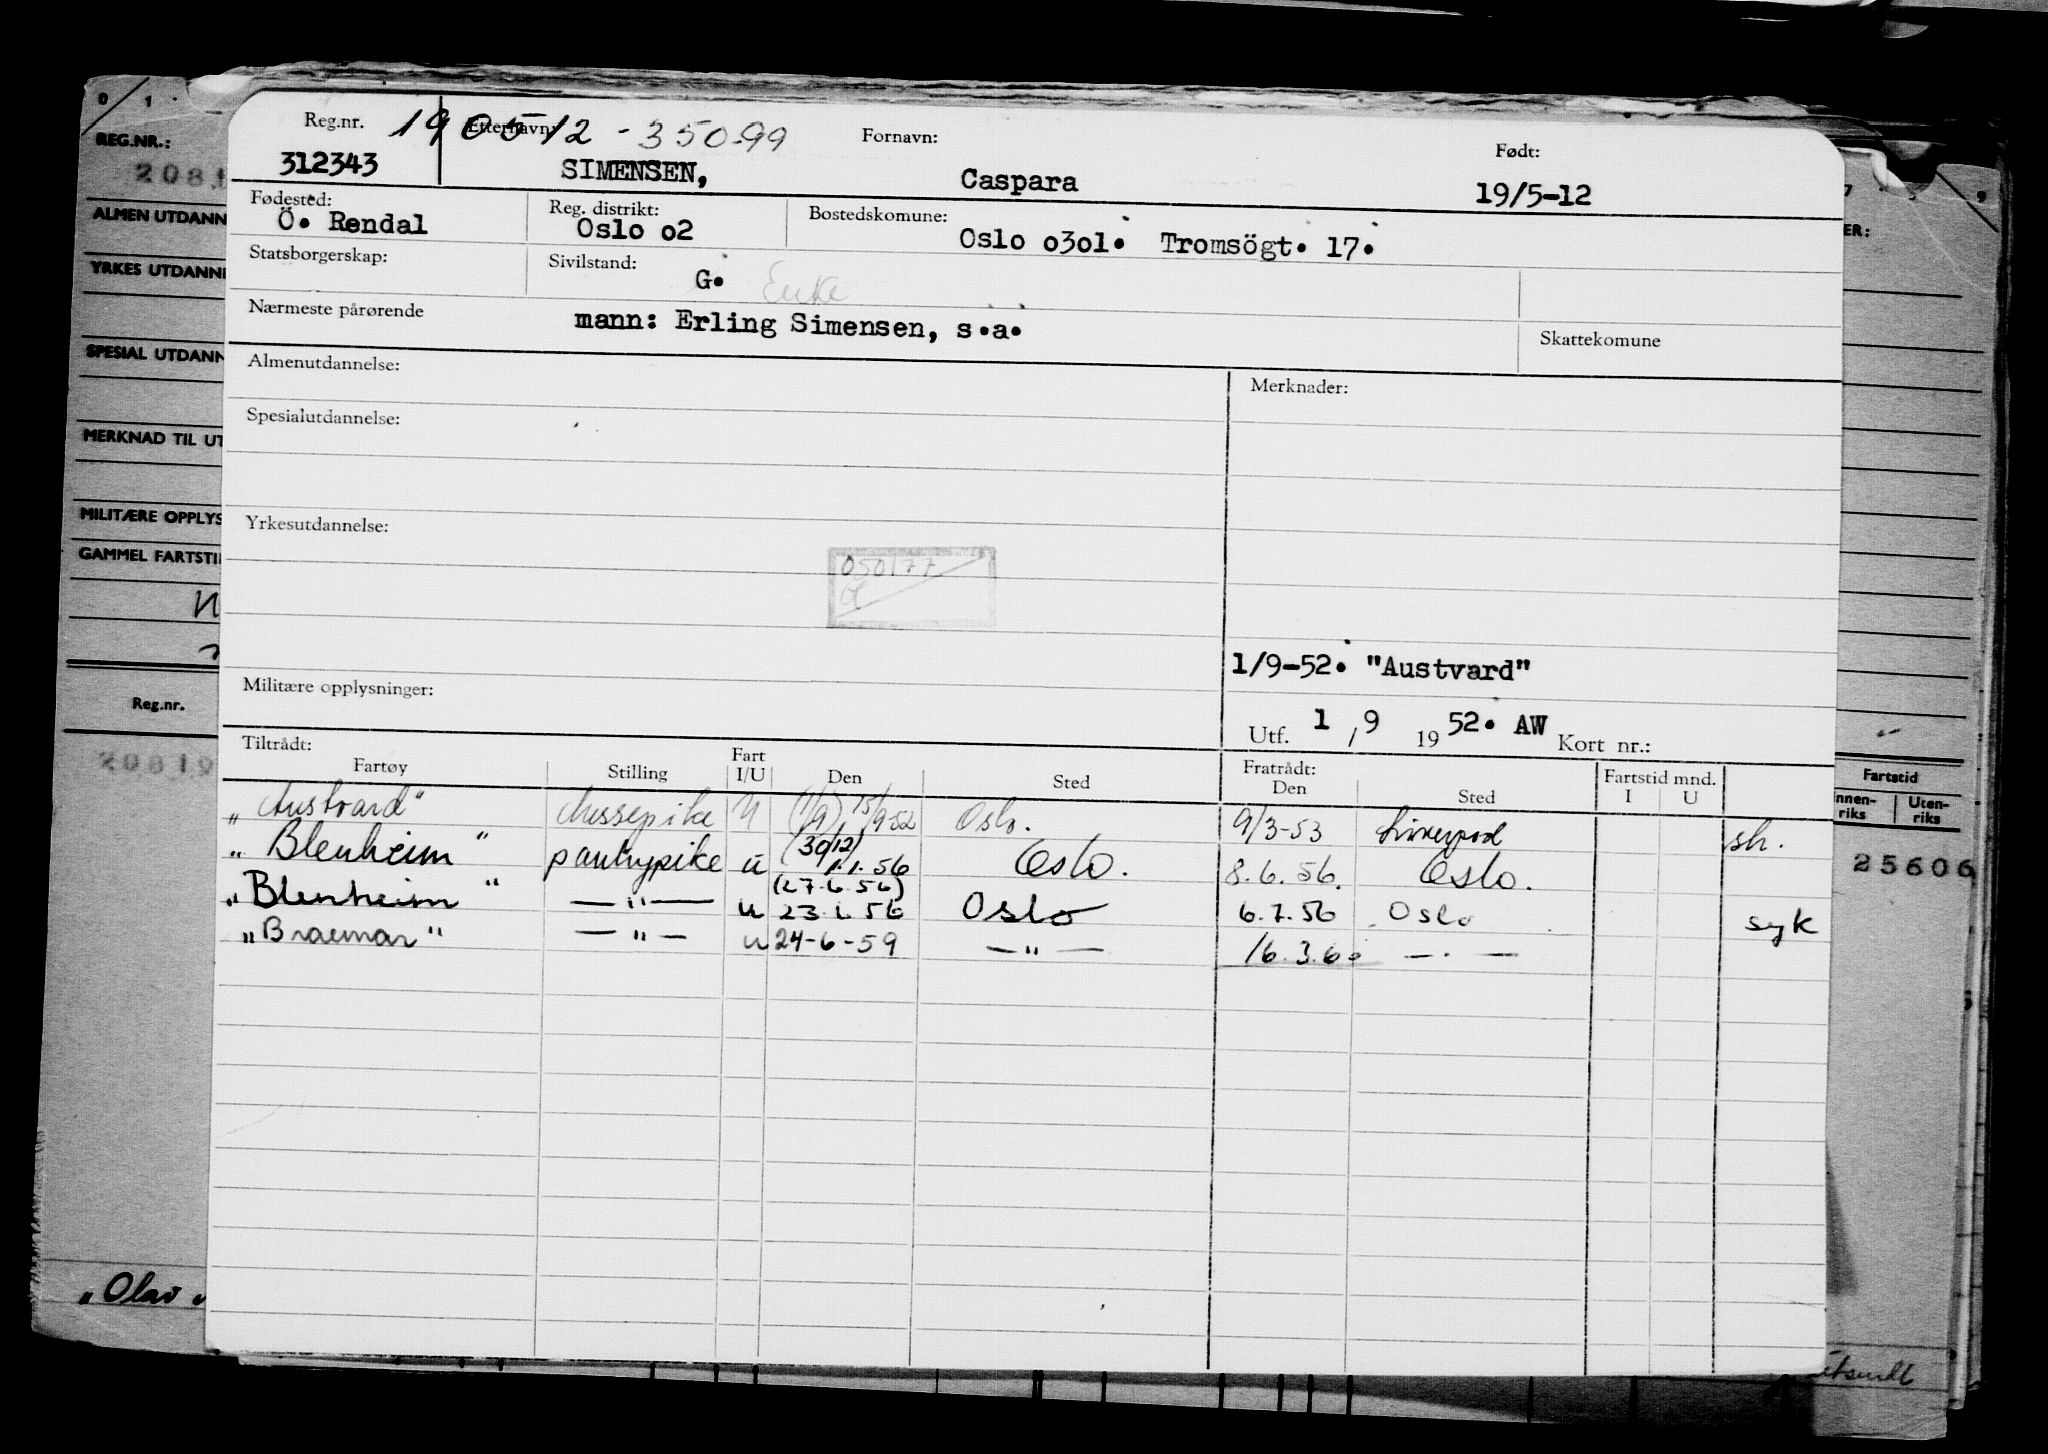 0 1
REG.NR.:
2081
ALMEN UTDANN
YRKES UTDANNI
SPESIAL UTDANN
MERKNAD TIL UT
MILITÆRE OPPLYS
GAMMEL FARTSTI
Reg.nr.
20819
"Olav"
Reg.nr. 190512-350.99 Etternavn: Fornavn: Født:
312343 SIMENSEN, Caspara 19/5-12
Fødested: Reg. distrikt: Bostedskomune:
Ö. Rendal Oslo o2 Oslo o3o1. Tromsögt. 17.
Statsborgerskap: Sivilstand: G. Enke
Nærmeste pårørende mann: Erling Simensen, s.a. Skattekomune
Almenutdannelse: Merknader:
Spesialutdannelse:
Yrkesutdannelse:
050177
1/9-52. "Austvard"
Militære opplysninger:
Utf. 1/9 1952. AW Kort nr.:
Tiltrådt: Fratrådt: Fartstid mnd.
Fartøy Stilling Fart I/U Den Sted Den Sted I U
"Austvard" Messepike U (1/9) 15/9-52 Oslo. 9/3-53 Liverpool
"Blenheim" pantrypike u (30/12) 1.1.56 Oslo. 8.6.56. Oslo.
"Blenheim" — " — u (27.6.56) 23.6.56 Oslo 6.7.56 Oslo syk
"Braemar" — " — u 24-6-59 — " — 16.3.60 — " —
7 9
ER:
Fartstid
nnen-riks Uten-riks
25606